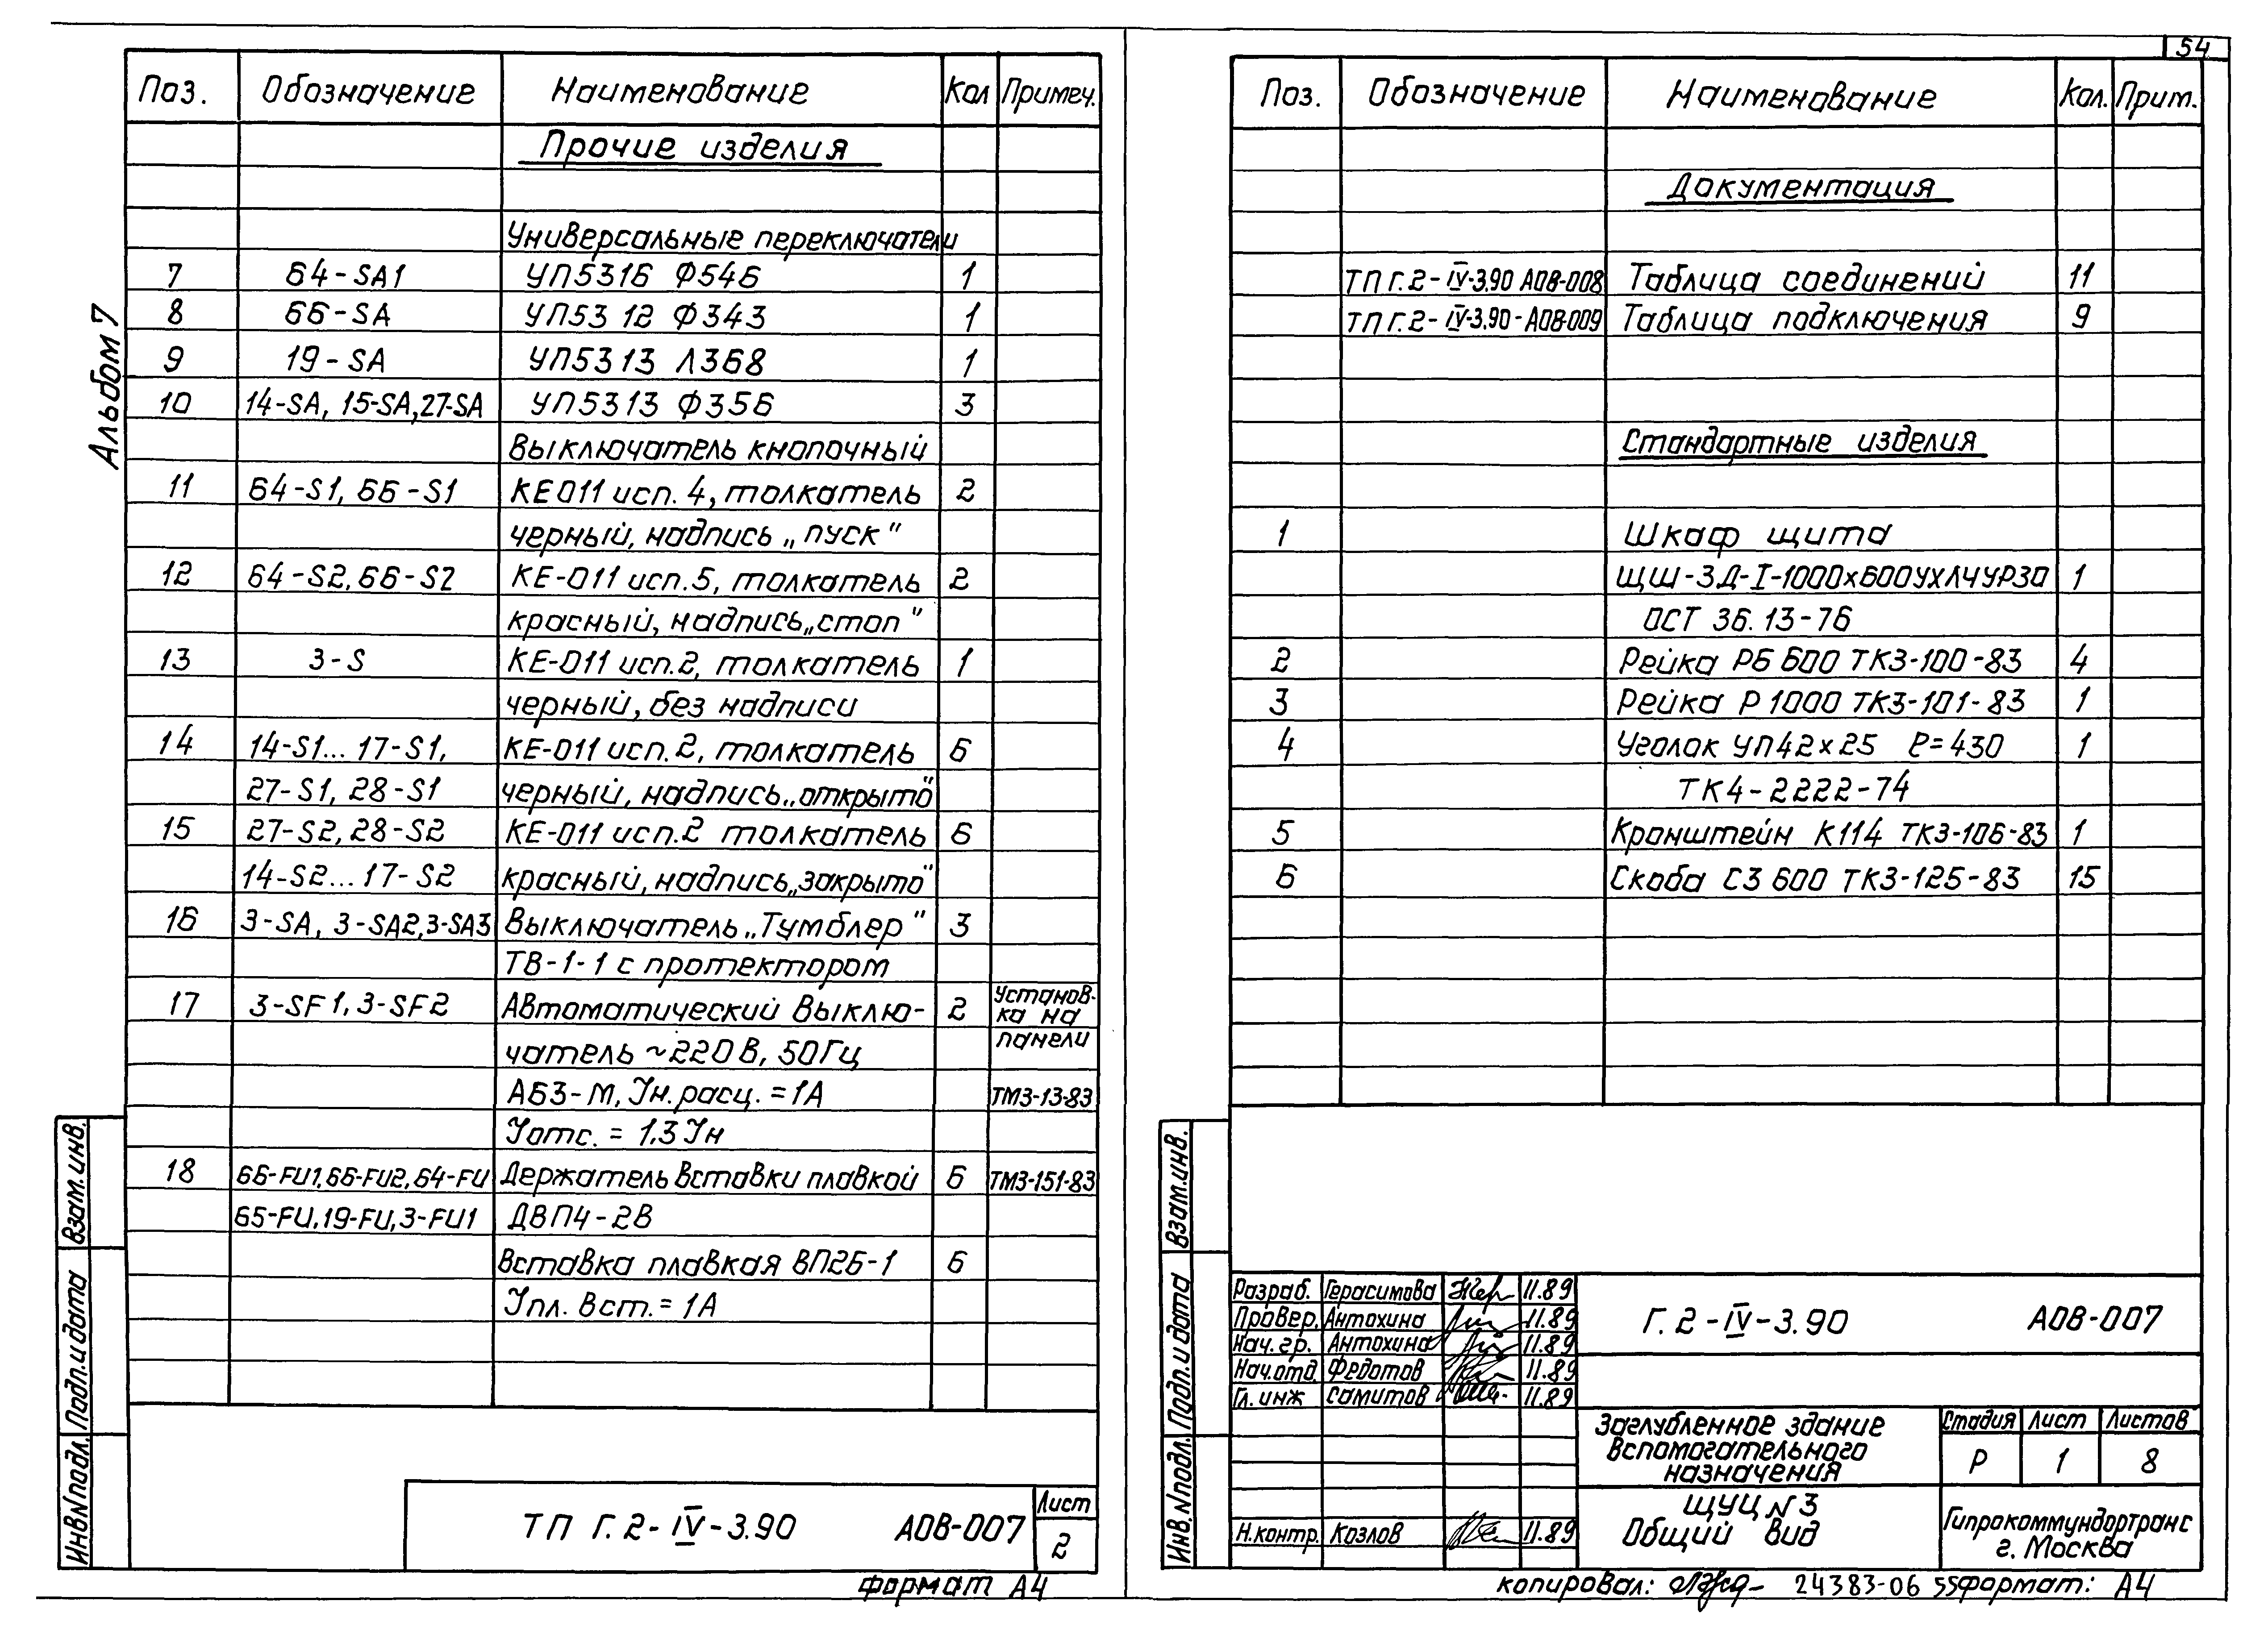 54
Альбом 7
Поз. Обозначение Наименование Кол Примеч.
Прочие изделия
Универсальные переключатели
7 64-SA1 УП5316 Ф546 1
8 66-SA УП53 12 Ф343 1
9 19-SA УП5313 Л368 1
10 14-SA, 15-SA, 27-SA УП5313 Ф356 3
Выключатель кнопочный
11 64-S1, 66-S1 КЕ011 исп. 4, толкатель 2
черный, надпись „пуск"
12 64-S2, 66-S2 КЕ-011 исп. 5, толкатель 2
красный, надпись „стоп"
13 3-S КЕ-011 исп. 2, толкатель 1
черный, без надписи
14 14-S1... 17-S1, КЕ-011 исп. 2, толкатель 6
27-S1, 28-S1 черный, надпись „открыто"
15 27-S2, 28-S2 КЕ-011 исп. 2 толкатель 6
14-S2... 17-S2 красный, надпись „закрыто"
16 3-SA, 3-SA2, 3-SA3 Выключатель „Тумблер" 3
ТВ-1-1 с протектором
17 3-SF1, 3-SF2 Автоматический выклю- 2 установ-
ка на
чатель ~220 В, 50Гц панели
АБ3-М, Iн. расц. = 1А ТМ3-13-83
Iотс. = 1.3 Iн
18 66-FU1, 66-FU2, 64-FU Держатель вставки плавкой 6 ТМ3-151-83
65-FU, 19-FU, 3-FU1 ДВП4-2В
Вставка плавкая ВП2Б-1 6
Iпл. вст. = 1А
Взам. инв.
Подп. и дата
Инв. N подл.
ТП Г. 2-IV-3.90 АОВ-007 Лист
2
формат А4
Поз. Обозначение Наименование Кол. Прим.
Документация
ТП Г. 2-IV-3.90 АОВ-008 Таблица соединений 11
ТП Г. 2-IV-3.90-АОВ-009 Таблица подключения 9
Стандартные изделия
1 Шкаф щита
ЩШ-3Д-I-1000x600УХЛ4УР30 1
ОСТ 36. 13-76
2 Рейка РБ 600 ТК3-100-83 4
3 Рейка Р 1000 ТК3-101-83 1
4 Уголок УП42x25 ℓ=430 1
ТК4-2222-74
5 Кронштейн К114 ТК3-106-83 1
6 Скоба С3 600 ТК3-125-83 15
Взам. инв.
Подп. и дата
Инв. N подл.
Разраб. Герасимова 11.89
Провер. Антохина 11.89
Нач. гр. Антохина 11.89
Нач. отд. Федотов 11.89
Гл. инж Самитов 11.89
Н. контр. Козлов 11.89
Г. 2-IV-3.90 АОВ-007
Заглубленное здание
вспомогательного
назначения
Стадия Лист Листов
Р 1 8
ЩУЦ N 3
Общий вид
Гипрокоммундортранс
г. Москва
копировал: 24383-06 55 формат: А4